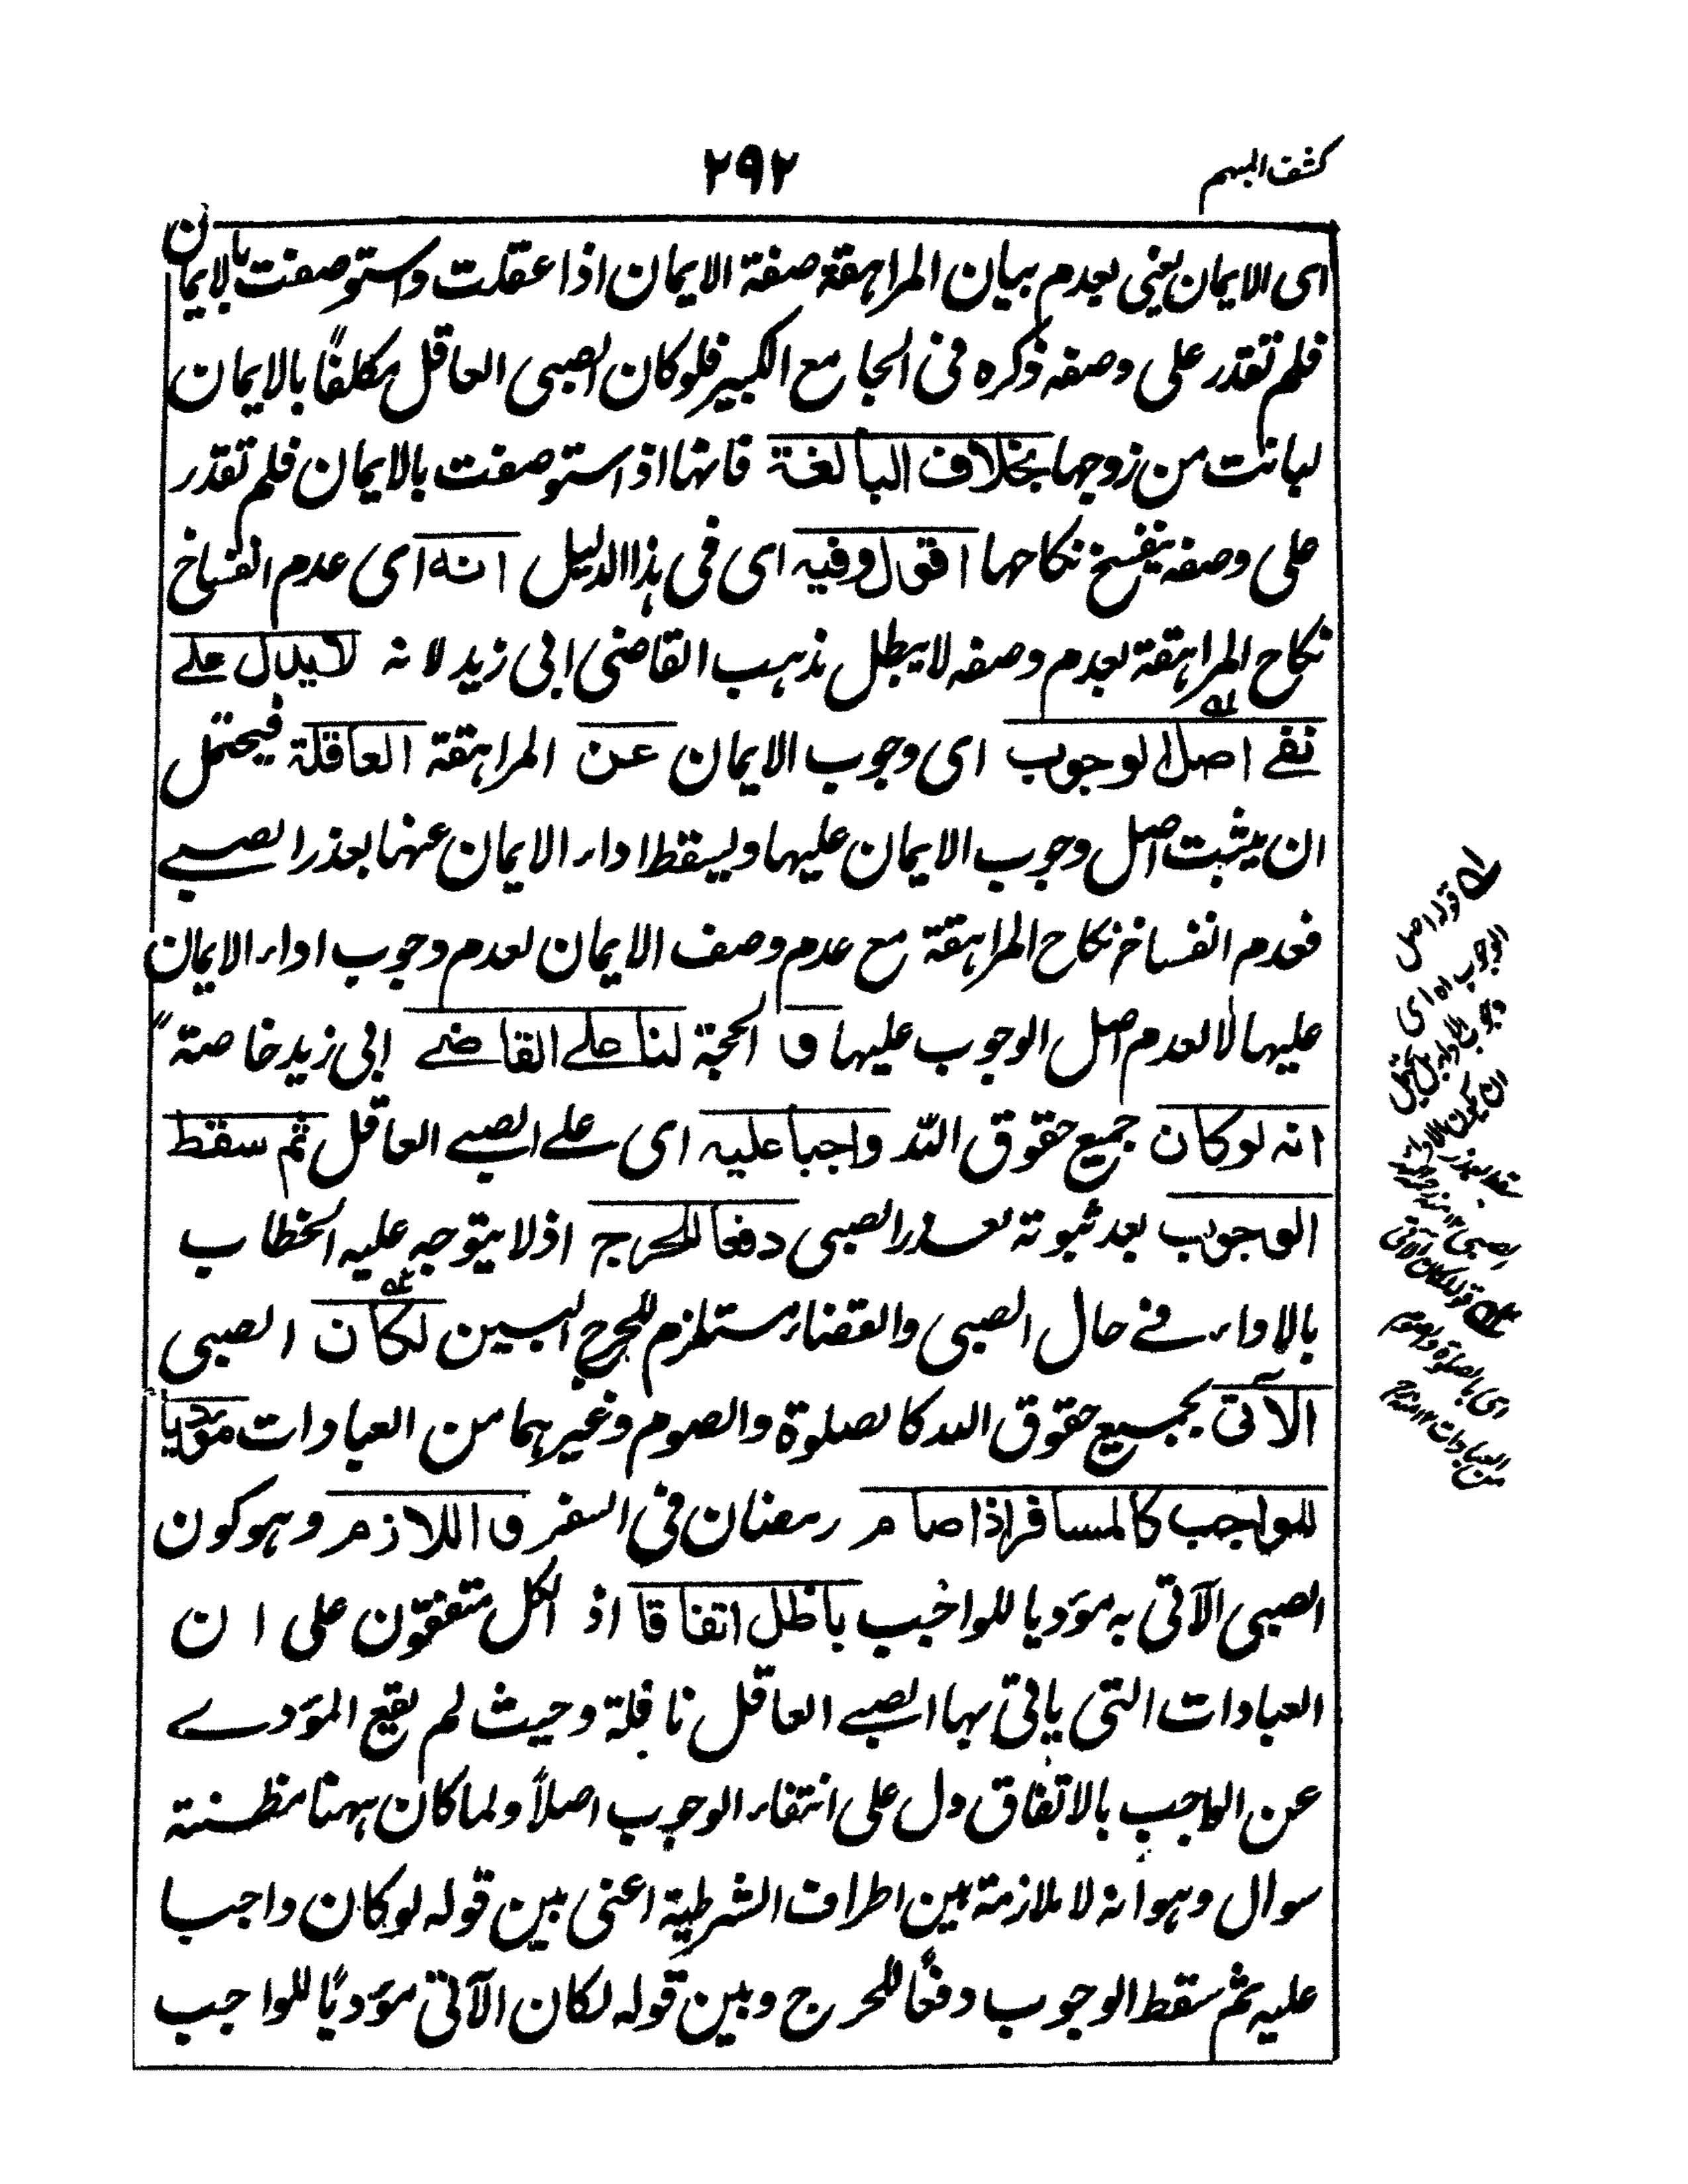 كشف المبهم
٢٩٢
اى الايمان يعنى بعدم بيان المراهقة صفة الايمان اذا عقلت واستوصفت بالايمان
فلم تقدر على وصفه ذكره فى الجامع الكبير فلو كان الصبى العاقل مكلفًا بالايمان
لبانت من زوجها بخلاف البالغة فانها اذا استوصفت بالايمان فلم تقدر
على وصفه ينفسخ نكاحها اقول وفيه اى فى هذا الدليل انه اى عدم انفساخ
نكاح المراهقة بعدم وصفه لا يبطل مذهب القاضى ابى زيد لانه لا يدل على
نفے اصل الوجوب اى وجوب الايمان عن المراهقة العاقلة فيحتمل
ان يثبت اصل وجوب الايمان عليها ويسقط اداء الايمان عنها بعذر الصبے
فعدم انفساخ نكاح المراهقة مع عدم وصف الايمان لعدم وجوب اداء الايمان
عليها لا لعدم اصل الوجوب عليها و الحجة لنا علے القاضے ابى زيد خاصة ً
انه لو كان جميع حقوق الله واجبا عليه اى علے الصبے العاقل ثم سقط
الوجوب بعد ثبوته بعذر الصبى دفعا للحرج اذ لا يتوجه عليه الخطاب
بالاداء فے حال الصبى والقضاء مستلزم للحرج البين لكان الصبى
الآتى بجميع حقوق الله كالصلوة والصوم وغيرهما من العبادات مؤديا
للواجب كالمسافر اذا صام رمضان فى السفر و اللازم وهو كون
الصبى الآتى به مؤديا للواجب باطل اتفاقا اذ الكل متفقون على ان
العبادات التى ياتى بها الصبے العاقل نافلة وحيث لم يقع المؤدے
عن الواجب بالاتفاق دل على انتفاء الوجوب اصلاً ولما كان ههنا مظنة
سوال وهو انه لا ملازمة بين اطراف الشرطية اعنى بين قوله لو كان واجبا
عليه ثم سقط الوجوب دفعًا للحرج وبين قوله لكان الآتى مؤديًا للواجب
له قوله اصل
الوجوب اه اى
ان يكون الاداء
من العبادات